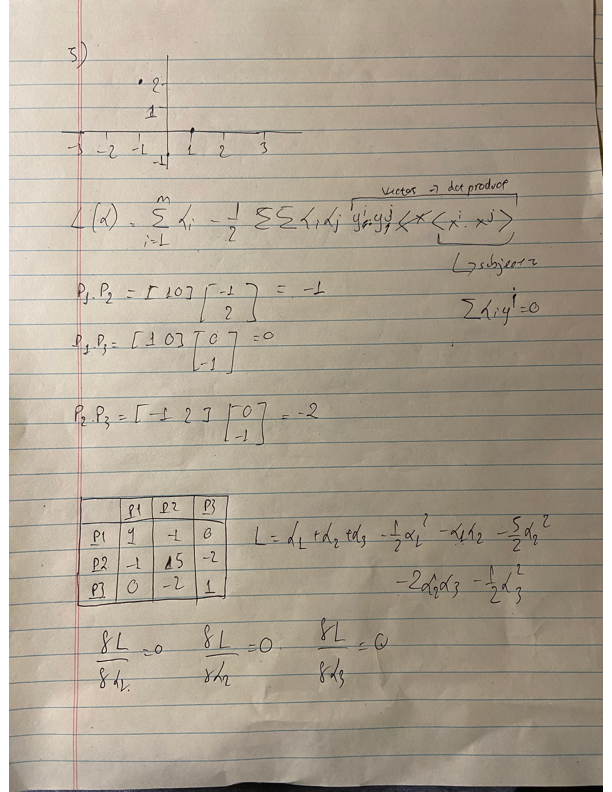 3)
2
1
-3 -2 -1 1 2 3
-1
vectors → dot product
L(α) = Σ_{i=1}^{m} αi - 1/2 ΣΣ αi αj y^i y^j <x^i . x^j>
↳ subject
Σ αi y^i = 0
P1.P2 = [1 0] [-1 2] = -1
P1.P3 = [1 0] [0 -1] = 0
P2.P3 = [-1 2] [0 -1] = -2
P1 P2 P3
P1 1 -1 0
P2 -1 5 -2
P3 0 -2 1
L = α1 + α2 + α3 - 1/2 α1² - α1α2 - 5/2 α2²
- 2α2α3 - 1/2 α3²
δL/δα1 = 0 δL/δα2 = 0 δL/δα3 = 0